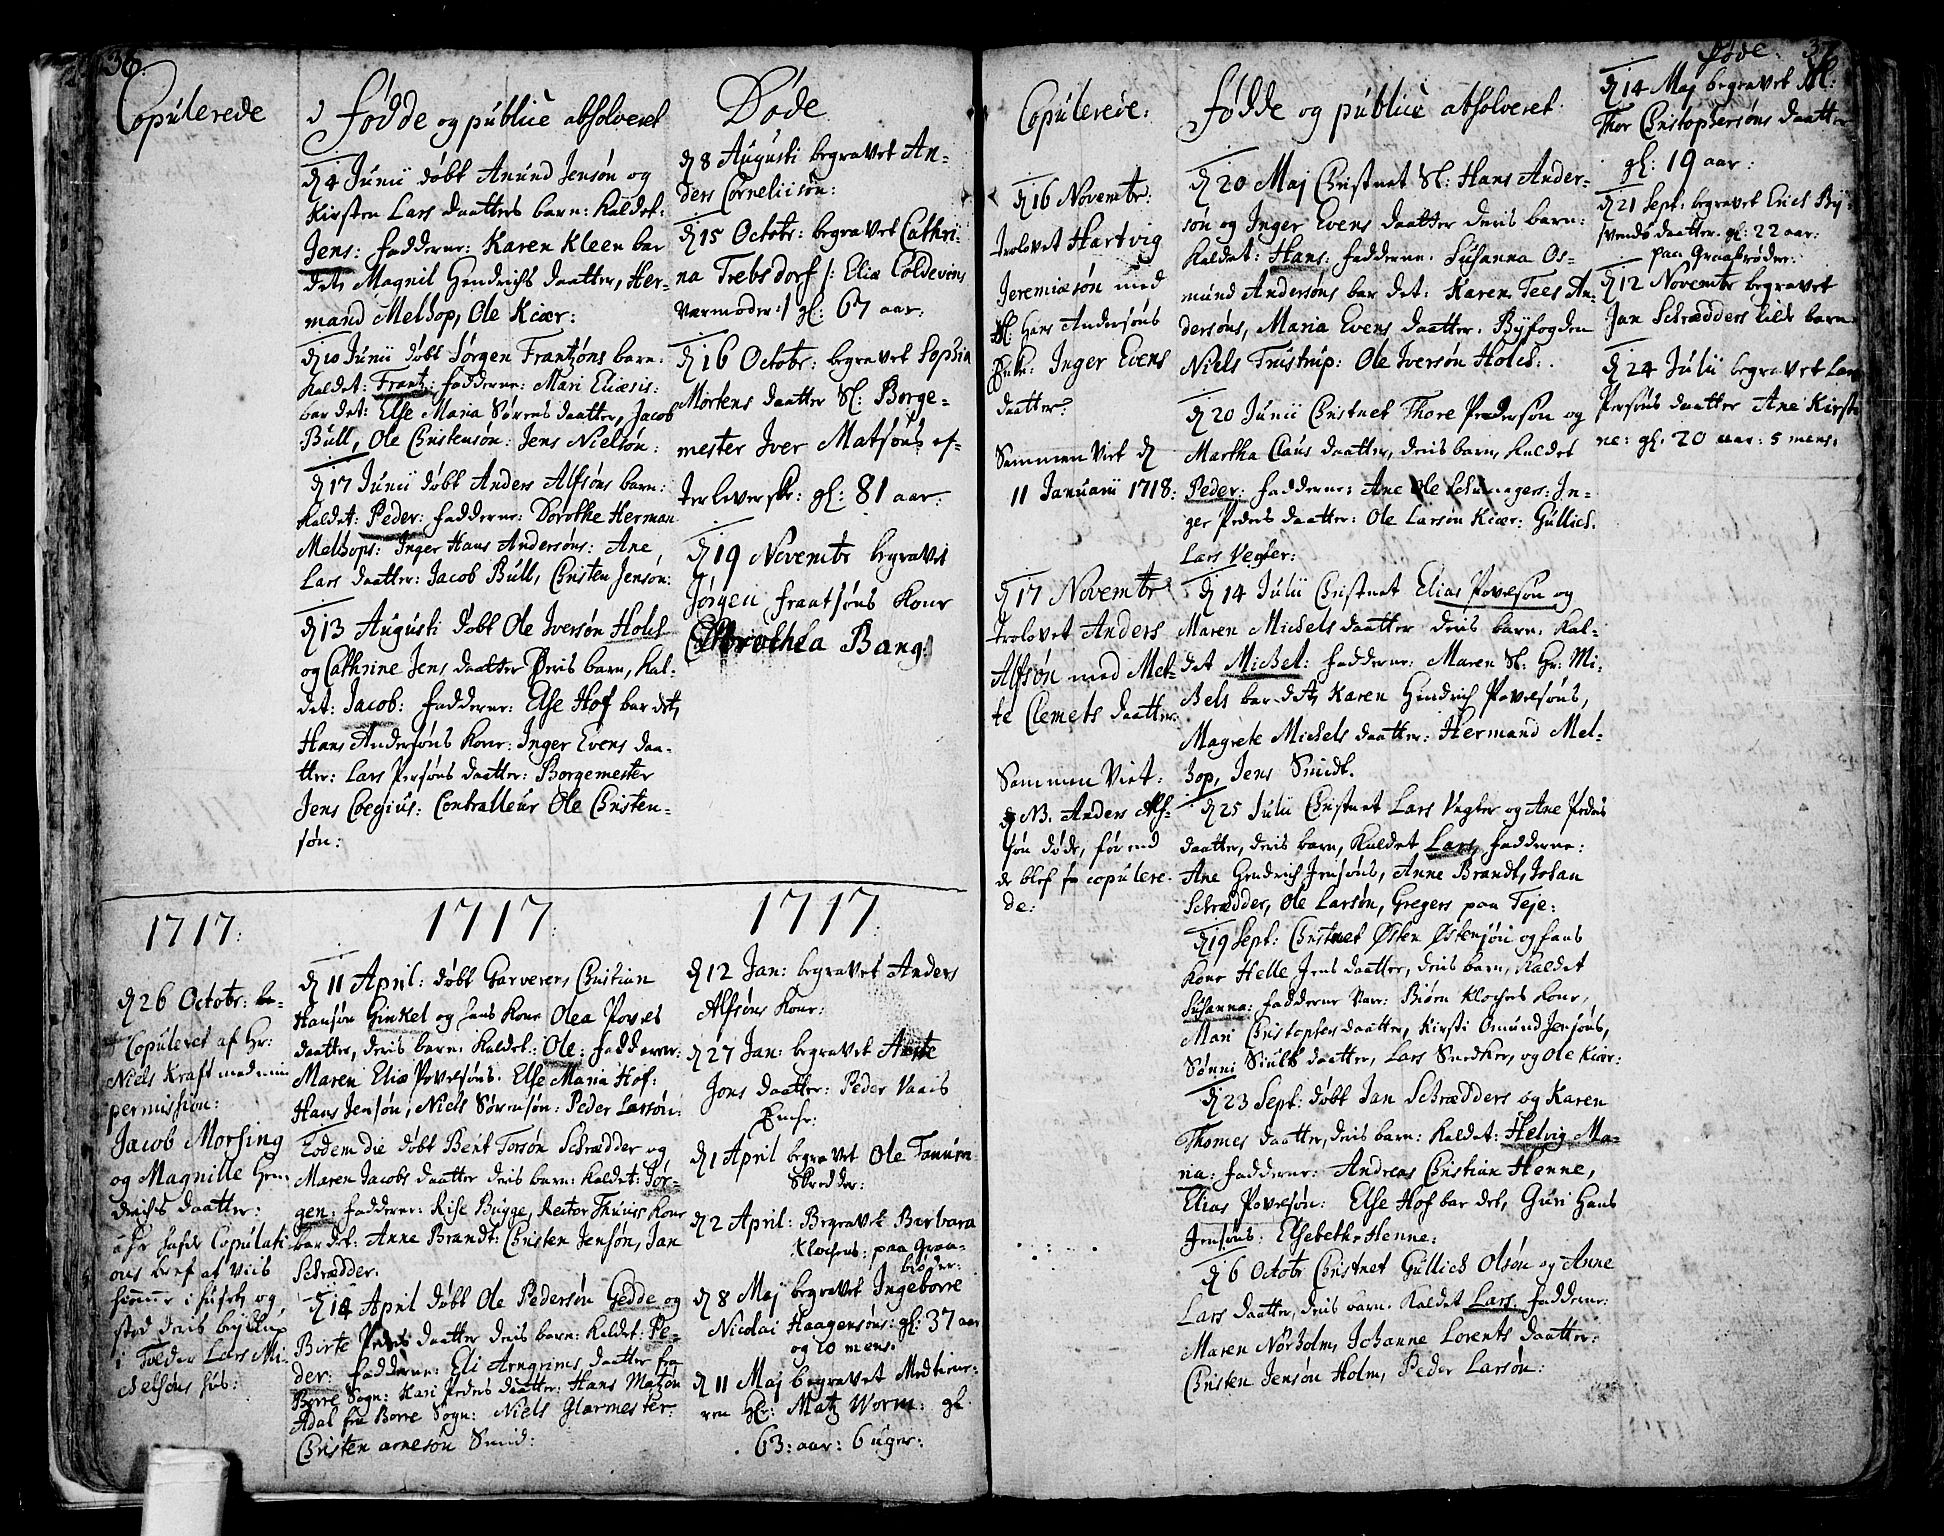 36.
Copulerede
Fødde og publicè absolveret
d 4 Junii døbt Amund Jensøn og
Kirsten Lars daatters barn: Kaldet:
Jens: Fadderne: Karen Kleen bar
det, Magnil Hendrichs daatter, Her-
mand Melhop, Ole Kiær:
d 10 Junii døbt Sørgen Frantzøns barn:
Kaldet: Frantz: Fadderne: Mari Eliæsis:
bar det: Else Maria Sørens daatter, Jacob
Bull, Ole Christensøn: Jens Nielsøn:
d 17 Junii døbt Anders Alfsøns barn:
Kaldet: Peder: Fadderne: Dorothe Herman
Melhops: Inger Hans Andersøns: Ane
Lars daatter: Jacob Bull, Christen Jensøn:
d 13 Augusti døbt Ole Iversøn Holch
og Cathrine Jens daatter Deris barn, Kal-
det: Jacob: Fadderne: Else Hof bar det,
Hans Andersøns Kone: Inger Evens daa-
tter: Lars Persøns daatter: Borgemester
Jens Coegius: Contralleur Ole Christen-
søn:
Døde
d 8 Augusti begravet An-
ders Corneliisøn:
d 15 Octobr: begravet Cathri-
na Trebsdorf /: Eliæ Coldevins
Værmoder:/ gl: 67 aar:
d 16 Octobr: begravet Sophia
Mortens daatter Sl: Borge-
mester Iver Matsøns ef-
terleverske: gl: 81 aar.
d 19 Novembr begravet
Jørgen Frantsøns Kone
Dorothea Bang:
1717:
d 26 Octobr: be-
Copuleret af Hr:
Niels Kraft med min
permission:
Jacob Morsing
og Magnille Hen-
drichs daatter:
Copulati
ons bref at Viis
i huset, og
stod deris bryllup
i Tolder Lars Mi-
chelsøns hus:
1717:
d 11 April: døbt Garverers Christian
Hansøn Ginkel og hans Kone Olea Povels
daatter, deris barn: Kaldet: Ole: Fadderne:
Maren Eliæ Povelsøns. Else Maria Hof:
Hans Jensøn, Niels Sørensøn: Peder Larsøn:
Eodem die døbt Bent Torsøn Schrædder og
Maren Jacobs daatter deris barn: Kaldet: Jør-
gen: Fadderne: Rise Bugge, Rector Kone
bar det: Anne Brandt: Christen Jensøn, Jan
Schrædder:
d 14 April døbt Ole Pedersøn Gedde og
Birte Peders daatter deris barn: Kaldet: Pe-
der: Fadderne: Eli Arngrims daatter fra
Borre Sogn: Kari Peders daatter: Hans Matzøn
Adal fra Borre Sogn: Niels Glarmester:
Christen arnesøn Smid:
1717:
d 12 Jan: begravet Anders
Alfsøns Kone:
d 27 Jan: begravet
Jons daatter: Peder Vaais
Encke:
d 1 April begravet Ole Tanum
Skredder:
d 2 April: Begravet Barbara
Klochens: paa Graa-
brøder:
d 8 Maj begravet Ingeborre
Nicolai Haagensøns: gl: 37 aar
og 10 mens.
d 11 Maj begravet
ren Hr: Matz Worm: gl:
63: aar: 6 uger:
Copulerede:
d 16 Novembr:
trolovet Hartvig
Jeremiæsøn med
Sl: Hans Andersøns
Enke: Inger Evens
daatter:
Sammen Viet d
11 Januarii 1718:
d 17 Novembr
trolovet Anders
Alfsøn med Met-
te Clemets daatter:
Sammen Viet:
NB. Anders Alf-
søn døde, før end
de blef copulere-
de:
Fødde og publicè absolveret:
d 20 Maj Christnet Sl: Hans Ander-
søn og Inger Evens daatter deris barn:
Kaldet: Hans: Fadderne: Susanna Os-
mund Andersøns bar det: Karen Tees An-
dersøns, Maria Evens daatter. Byfogden
Niels Tristrup: Ole Iversøn Holch:
d 20 Junii Christnet Thore Pedersøn og
Martha Claus daatter, deris barn, Kaldet
Peder: Fadderne: Ane Ole Schumagers: In-
ger Peders daatter: Ole Larsøn Kiær: Gullich
Lars Vegter:
d 14 Julii Christnet Elias Povelsøn og
Maren Michels daatter deris barn. Kal-
det Michel: Fadderne: Maren Sl: Hr: Mi-
chels bar det, Karen Hendrich Povelsøns,
Magrete Michels daatter: Hermand Mel-
hop, Jens Smidt.
d 25 Julii Christnet Lars Vegter og Ane Peders
daatter, deris barn, Kaldet Lars, Fadderne:
Ane Hendrich Jensøns, Anne Brandt, Johan
Schrædder, Ole Larsøn, Gregers paa Teje:
d 19 Sept: Christnet Østen Østensøn og hans
Kone Helle Jens daatter, deris barn, Kaldet
Susanna: Fadderne Var: Biørn Klochers Kone,
Mari Christophers daatter, Kirsti Omund Jensøns,
Sønni Siuls daatter, Lars Snedker, og Ole Kiær:
d 23 Sept: døbt Jan Schrædders og Karen
Thomes daatter, deris barn: Kaldet: Helvig Ma-
ria: Fadderne: Andreas Christian Henne,
Elias Povelsøn: Else Hof bar det, Guri Hans
Jensøns: Elsebethe Henne:
d 6 Octobr Christnet Gullich Olsøn og Anne
Lars daatter, deris barn. Kaldet Lars. Fadderne:
Maren Nørholm, Johanne Lorents daatter:
Christen Jensøn Holm, Peder Larsøn:
Døde. 37
d 14 Maj begravet Sl:
Thor Christophersøns daatter
gl: 19 aar:
d 21 Sept: begravet Erich By-
svends daatter. gl: 22 aar:
paa Graabrøder:
d 12 Novembr begravet
Jan Schrædders lille barn
d 24 Julii begravet Lars
Persøns daatter Ane Kirsti-
ne: gl: 20 aar: 5 mens: